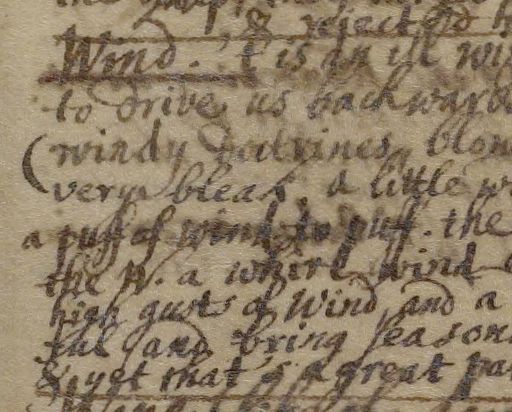 & rejected
Wind. t is an ill
to drive us backward
(windy doctrines, blow
very bleak. a little
a puff of wind to puff. the
the W. a whirl wind
high gusts of Wind, and a
ful and bring season
& yet that's a great